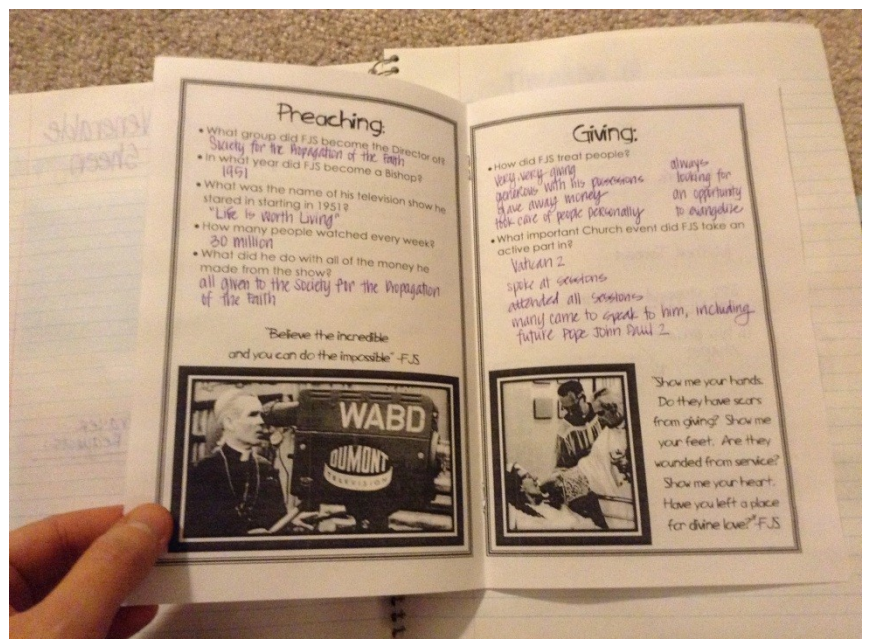 Preaching:
• What group did FJS become the Director of?
Society for the Propagation of the Faith
• In what year did FJS become a Bishop?
1951
• What was the name of his television show he
stared in starting in 1951?
"Life is Worth Living"
• How many people watched every week?
30 million
• What did he do with all of the money he
made from the show?
all given to the Society for the Propagation
of the Faith
"Believe the incredible
and you can do the impossible" -FJS
WABD
DUMONT
TELEVISION
Giving:
• How did FJS treat people?
very, very giving
generous with his possessions
gave away money
took care of people personally
always
looking for
an opportunity
to evangelize
• What important Church event did FJS take an
active part in?
Vatican 2
spoke at sessions
attended all sessions
many came to speak to him, including
future Pope John Paul 2
"Show me your hands.
Do they have scars
from giving? Show me
your feet. Are they
wounded from service?
Show me your heart.
Have you left a place
for divine love?" -FJS
Venerable
Sheen